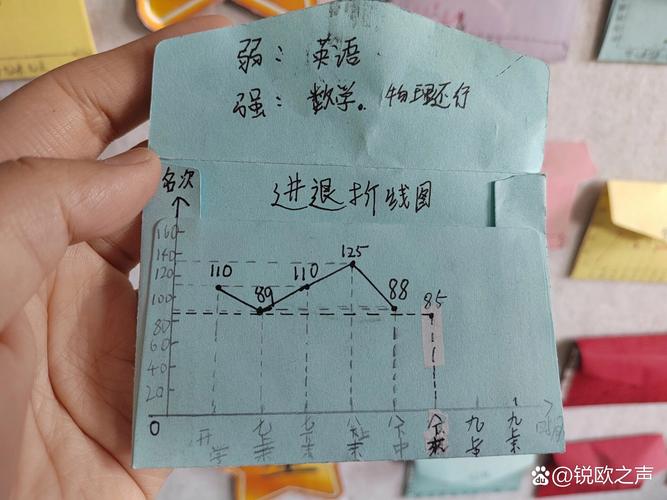 弱：英语
强：数学。物理还行
名次
进退折线图
160
140
120
100
80
60
40
20
0
110
89
110
125
88
85
开学
七上末
七下末
八上末
八下中
九上末
时间
锐欧之声